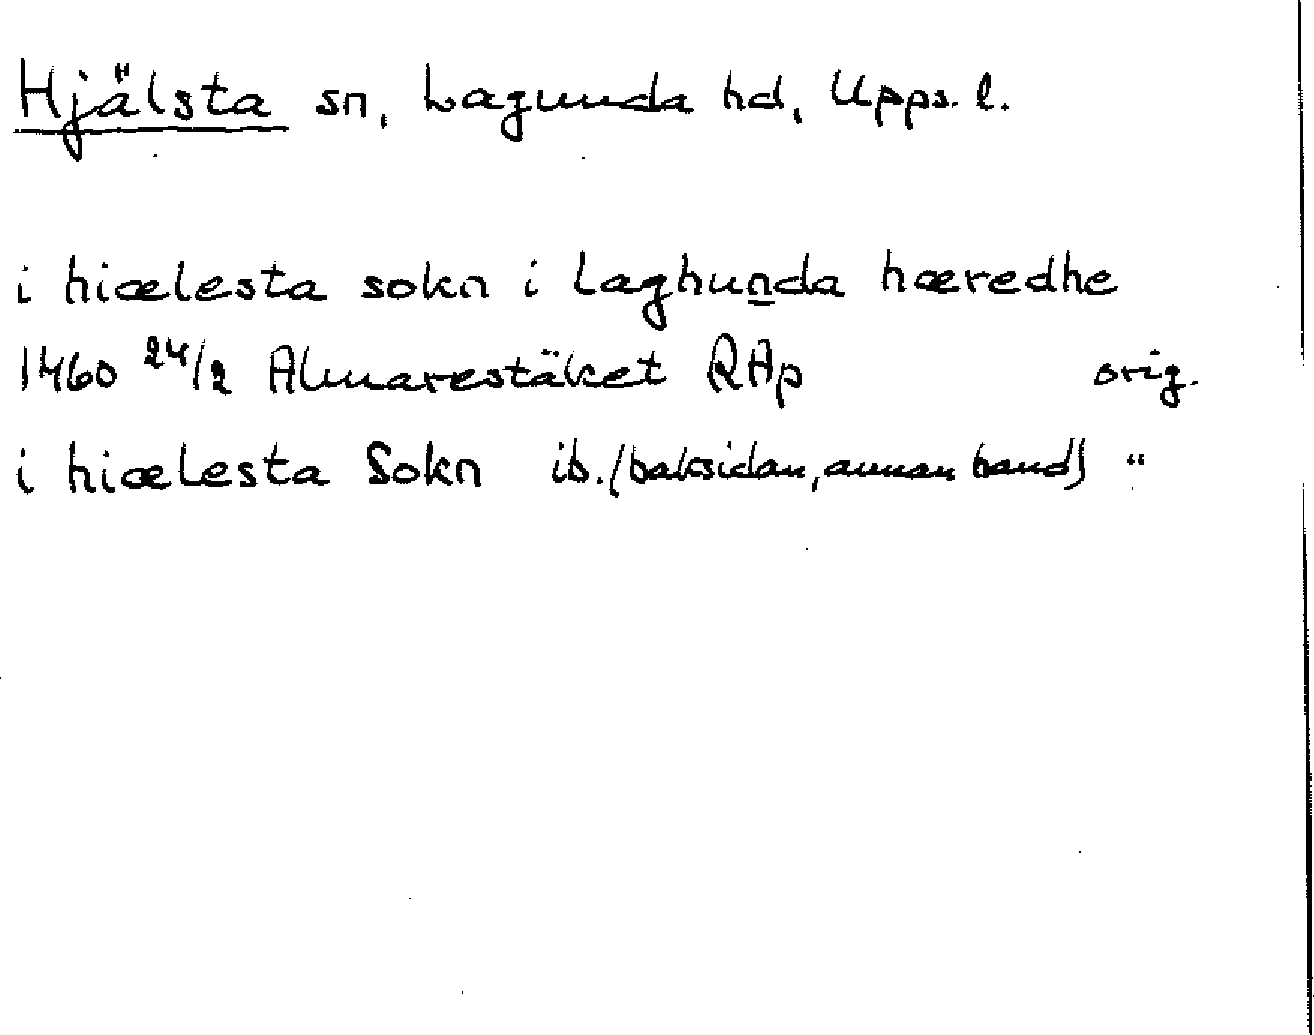 Hjälsta sn, Lagunda hd, Upps. l.
i hiælesta sokn i laghunda hæredhe
1460 24/2 Almarestäket RAp orig.
i hiælesta Sokn ib. (baksidan, annan hand) "